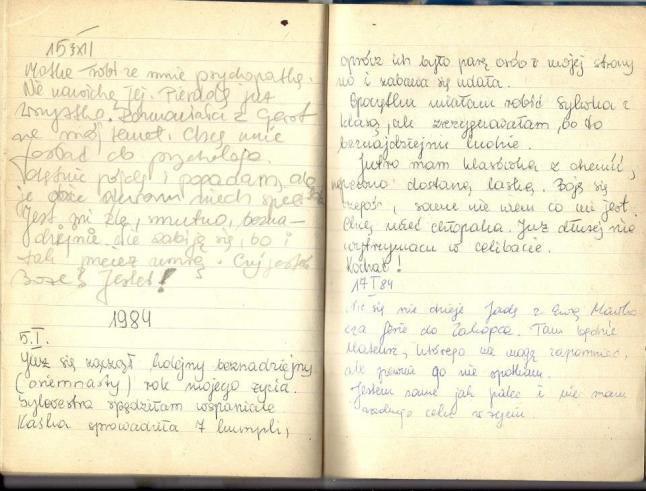 15 XII
Matka robi ze mnie psychopatkę.
Nienawidzę jej. Pierdolę już
wszystko. Rozmawiała z
na mój temat. Chcą mnie
posłać do psychologa.
pójdę i pogadam, ale
je niech
Jest mi źle, smutno, bezna-
dziejnie. Nie zabiję się, bo i
tak umrę. Czy jesteś
Boże? Jesteś!
1984
5.I.
Już się zaczął kolejny beznadziejny
(osiemnasty) rok mojego życia.
Sylwestra spędziłam wspaniale
Kaśka sprowadziła 7 kumpli,
oprócz ich było parę osób z mojej strony
no i zabawa się udała.
miałam robić Sylwka z
klasą, ale zrezygnowałam, bo to
beznadziejni ludzie.
Jutro mam klasówkę z chemii,
dostanę laskę. Boję się
czegoś, sama nie wiem co mi jest.
Chcę mieć chłopaka. Już dłużej nie
wytrzymam w celibacie.
Kochać!
17 I 84
Nic się nie dzieje. Jadę z Ewą
na ferie do Zakopca. Tam będzie
Mateusz, którego nie mogę zapomnieć,
ale pewnie go nie spotkam.
Jestem sama jak palec i nie mam
żadnego celu w życiu.